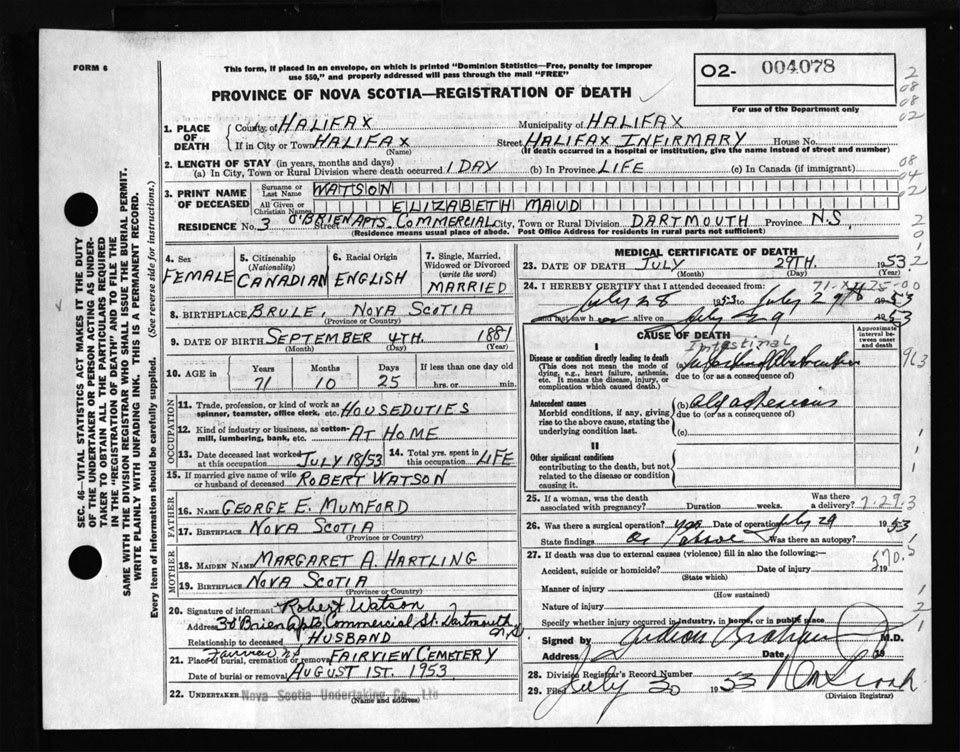 FORM 6
This form, if placed in an envelope, on which is printed "Dominion Statistics—Free, penalty for improper
use $50," and properly addressed will pass through the mail "FREE"
PROVINCE OF NOVA SCOTIA—REGISTRATION OF DEATH
O2- 004078
For use of the Department only
2
08
08
02
08
04
02
SEC. 46—VITAL STATISTICS ACT MAKES IT THE DUTY
OF THE UNDERTAKER OR PERSON ACTING AS UNDER-
TAKER TO OBTAIN ALL THE PARTICULARS REQUIRED
IN THE "REGISTRATION OF DEATH" AND TO FILE THE
SAME WITH THE DIVISION REGISTRAR WHO SHALL ISSUE THE BURIAL PERMIT.
WRITE PLAINLY WITH UNFADING INK. THIS IS A PERMANENT RECORD.
Every item of information should be carefully supplied. (See reverse side for instructions.)
1. PLACE OF DEATH
County of HALIFAX Municipality of HALIFAX
If in City or Town HALIFAX Street HALIFAX INFIRMARY House No.
(Name) (If death occurred in a hospital or institution, give the name instead of street and number)
2. LENGTH OF STAY (in years, months and days)
(a) In City, Town or Rural Division where death occurred 1 DAY (b) In Province LIFE (c) In Canada (if immigrant)
3. PRINT NAME OF DECEASED
Surname or Last Name WATSON
All Given or Christian Names ELIZABETH MAUD
RESIDENCE No. 3 Street O'BRIEN APTS. COMMERCIAL City, Town or Rural Division DARTMOUTH Province N.S.
(Residence means usual place of abode. Post Office Address for residents in rural parts not sufficient)
4. Sex FEMALE
5. Citizenship (Nationality) CANADIAN
6. Racial Origin ENGLISH
7. Single, Married, Widowed or Divorced (write the word) MARRIED
8. BIRTHPLACE BRULE, NOVA SCOTIA
(Province or Country)
9. DATE OF BIRTH SEPTEMBER 4TH. 1881
(Month) (Day) (Year)
10. AGE IN Years 71 Months 10 Days 25 If less than one day old hrs. or min.
OCCUPATION
11. Trade, profession, or kind of work as spinner, teamster, office clerk, etc. HOUSEDUTIES
12. Kind of industry or business, as cotton-mill, lumbering, bank, etc. AT HOME
13. Date deceased last worked at this occupation JULY 18/53 14. Total yrs. spent in this occupation LIFE
15. If married give name of wife or husband of deceased ROBERT WATSON
FATHER
16. NAME GEORGE E. MUMFORD
17. BIRTHPLACE NOVA SCOTIA
(Province or Country)
MOTHER
18. MAIDEN NAME MARGARET A. HARTLING
19. BIRTHPLACE NOVA SCOTIA
(Province or Country)
20. Signature of informant Robert Watson
Address 3 O'Brien Apts Commercial St. Dartmouth N.S
Relationship to deceased HUSBAND
Fairview NS
21. Place of burial, cremation or removal FAIRVIEW CEMETERY
Date of burial or removal AUGUST 1ST. 1953
22. UNDERTAKER Nova Scotia Undertaking Co. Ltd
(Name and address)
MEDICAL CERTIFICATE OF DEATH
23. DATE OF DEATH JULY 29TH. 1953
(Month) (Day) (Year)
24. I HEREBY CERTIFY that I attended deceased from:
July 28 1953 to July 29 1953
and last saw h alive on July 29 1953
CAUSE OF DEATH
Approximate interval between onset and death
I
Disease or condition directly leading to death
(This does not mean the mode of dying, e.g., heart failure, asthenia, etc. It means the disease, injury, or complication which caused death.)
Intestinal
(a) Obstruction
due to (or as a consequence of)
Antecedent causes
Morbid conditions, if any, giving rise to the above cause, stating the underlying condition last.
(b) old adhesions
due to (or as a consequence of)
(c)
II
Other significant conditions
contributing to the death, but not related to the disease or condition causing it.
25. If a woman, was the death associated with pregnancy? Duration weeks. Was there a delivery?
7-29.3
26. Was there a surgical operation? yes Date of operation July 29 1953
State findings as above Was there an autopsy?
27. If death was due to external causes (violence) fill in also the following:—
570.5
Accident, suicide or homicide? Date of injury 19
(State which)
Manner of injury
(How sustained)
Nature of injury
Specify whether injury occurred in industry, in home, or in public place
Signed by M.D.
Address Date 19
28. Division Registrar's Record Number
29. Filed July 30 1953
(Division Registrar)